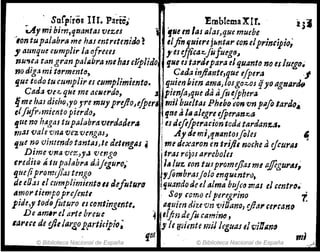 Suspiros III. Parte,
Ay mi bien, quantas vezes
con tu palabra me has entretenido?
y aunque cumplir la ofreces
nunca tan gran palabra me has cũplido
no diga mi tormento,
que todo tu cumplir es cumplimiento.
Cada vez que me acuerdo,
que me has dicho, yo yre muy presto, espera
el sufrimiento pierdo,
que no hagas tu palabra verdadera
mas vale vna vez vengas,
que no viniendo tantas, te detengas
Dime vna vez, ya vengo
credito à tu palabra dà seguro;
que si promessas tengo
de essas el cumplimiento es de futuro
amor tiempo presente
pide, y todo futuro es contingente.
De amar el arte breue
carece de esse largo participio;
Emblema XII. 231
que en las alas, que muebe
el fin quiere juntar con el principio,
y es eficaz su fuego,
que es tarde para el quanto no es luego.
Cada instante, que espera
quien bien ama, los gozos q̃ yo aguardo
piensa, que dà à su esphera
mil bueltas Phebo con vn passo tardo,
que à la alegre esperanza
es desesperacion toda tardanza.
Ay de mi, quantos soles
se dexaron en triste noche à escuras
tras rojos arreboles
la luz con tus promessas me asseguras,
y sombras solo enquentro,
quando de el alma busco mas el centro.
Soy como el peregrino
à quien dize vn villano, està cercano
el fin de su camino,
y le quiente mil leguas el villano